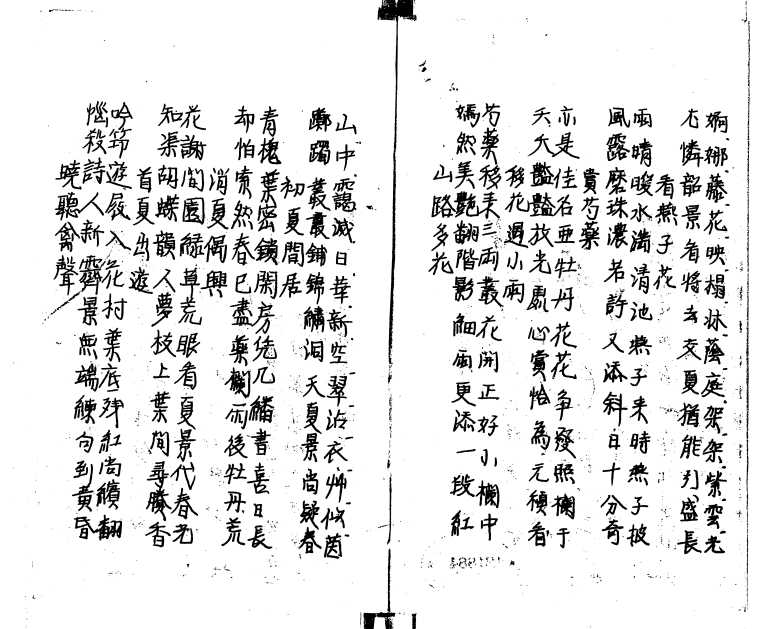 婀娜藤花映榻牀蔭庭架架紫雲光
尤憐韶景看將去交夏猶能引盛長
看燕子花
雨晴暖水滿清池燕子来時燕子披
風露磨珠濃若許又添斜日十分奇
賞芍藥
亦是佳名亜牡丹花花争發照欄干
夭夭豔豔放光風心賞恰為元積看
移花遇小雨
芍藥移来三両叢花開正好小欄中
嫣然美艷翻階影細雨更添一段紅
山路多花
山中靄減日華新空翠沾衣艸似茵
躑躅叢叢鋪錦繡洞天夏景尚疑春
初夏間居
青槐葉密鎖閑房凭几繙書喜日長
却怕索然春已盡藥欄雨後牡丹荒
消夏偶興
花謝間園緑草荒眼看夏景代春光
知渠胡蝶韻人夢枝上葉間尋賸香
首夏出遊
吟筇遊屐入花村葉底残紅尚纈翻
惱殺詩人新霽景無端練句到黄昏
暁聴禽聲